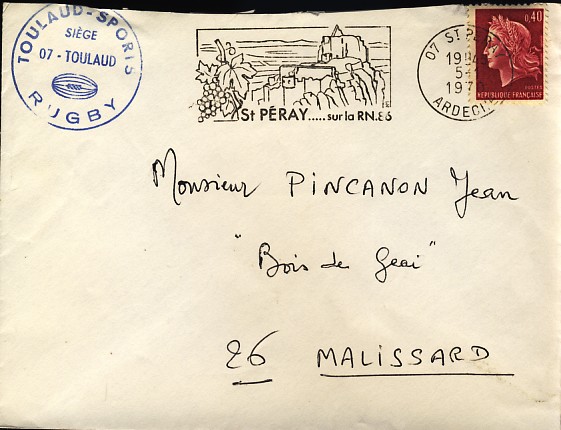 TOULAUD-SPORTS
SIÈGE
07 - TOULAUD
RUGBY
St PÉRAY.....sur la RN.86
07 ST
ARDECHE
0,40
POSTES
REPUBLIQUE FRANÇAISE
Monsieur PINCANON Jean
"Bois de Geai"
26 MALISSARD